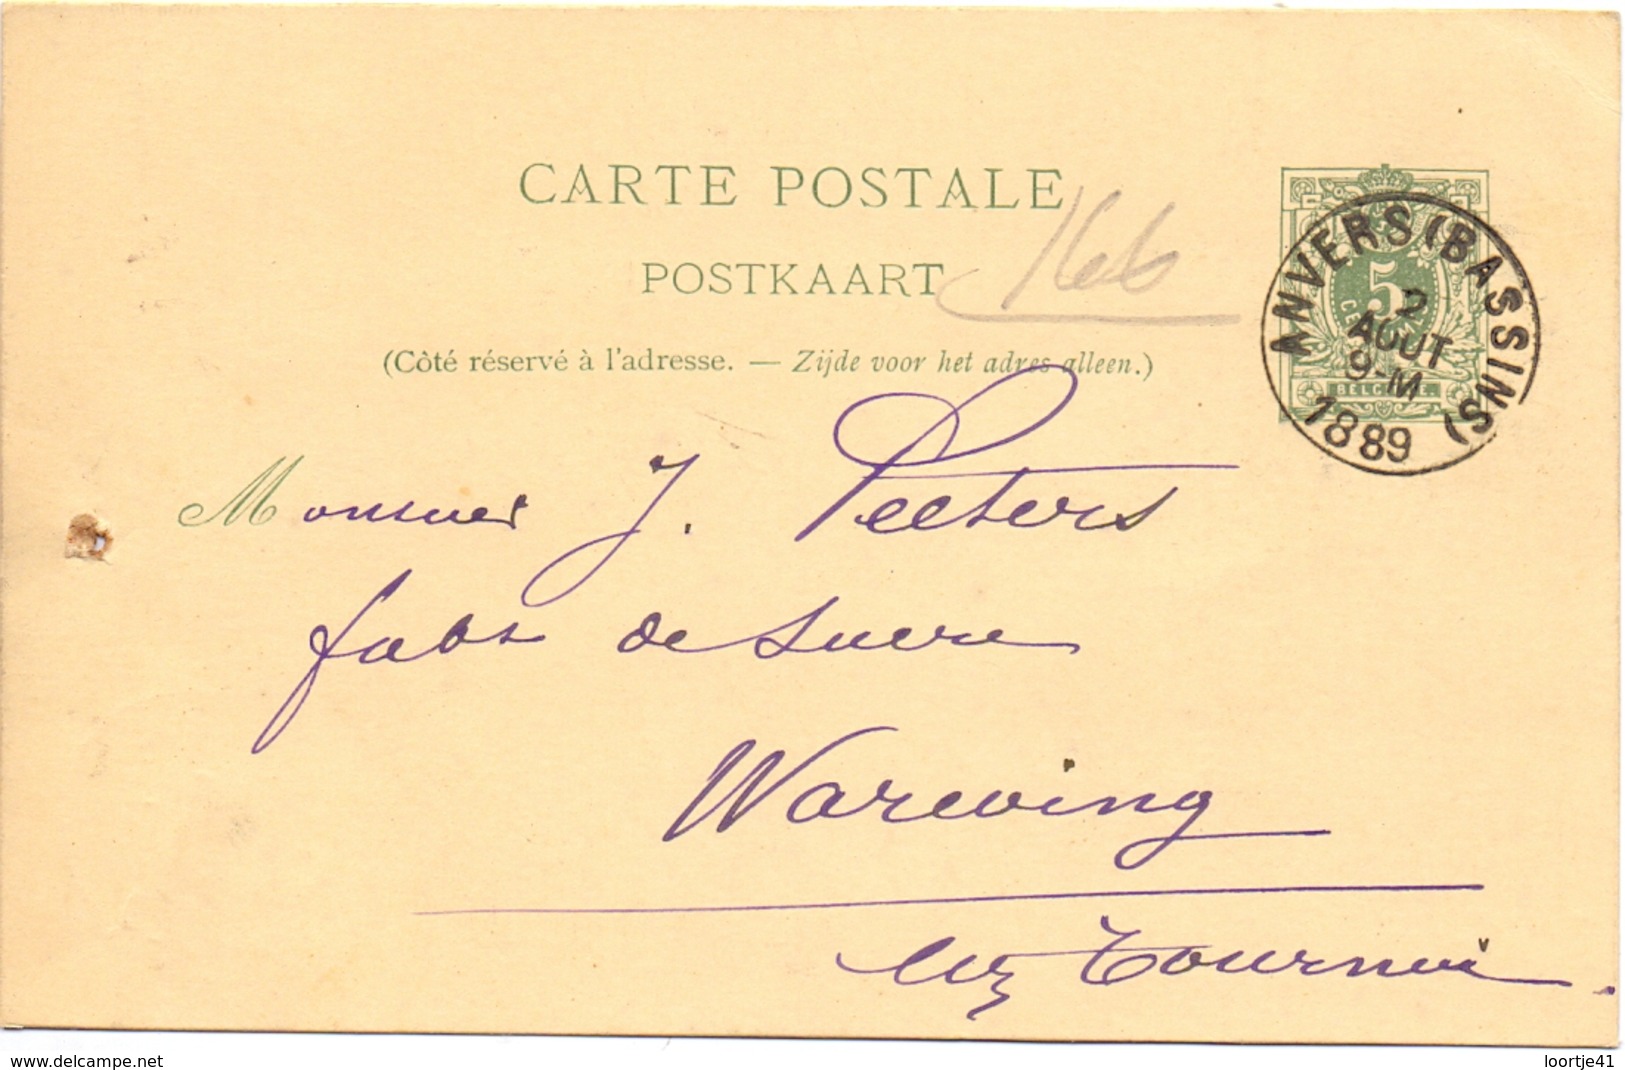 CARTE POSTALE
POSTKAART
166
(Côté réservé à l'adresse. — Zijde voor het adres alleen.)
5
BELGIQUE.
ANVERS (BASSINS)
2
AOUT
9-M
1889
Monsieur J. Peeters
fabt de Sucre
Warcoing
lez Tournai
www.delcampe.net
loortje41